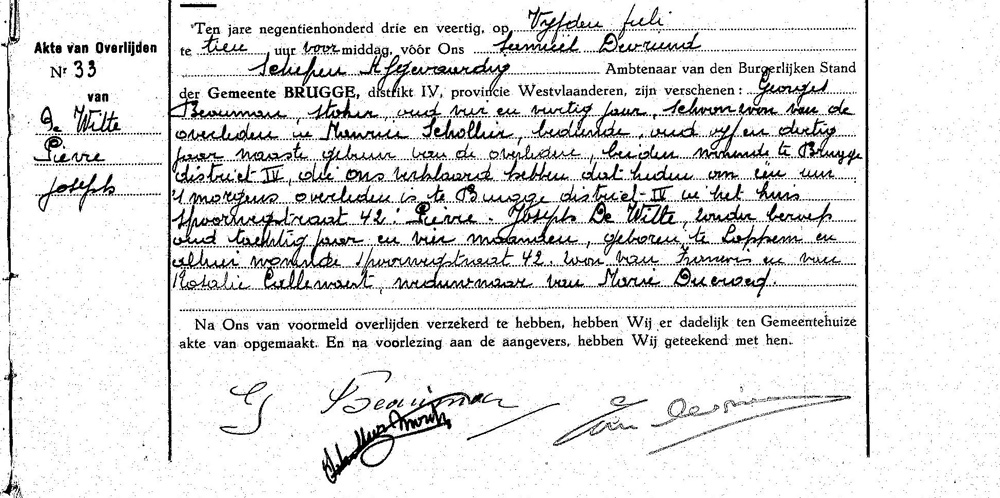 Akte van Overlijden
Nr 33
van
De Witte
Pierre
Joseph
Ten jare negentienhonderd drie en veertig, op Vyfden juli
te tien uur voormiddag, vóór Ons Devriend
Schepen Afgevaardig Ambtenaar van den Burgerlijken Stand
der Gemeente BRUGGE, distrikt IV, provincie Westvlaanderen, zijn verschenen: Georges
stoker, oud vier en vertig jaar, schoonzoon van de
overleden en Maurice Schollier, bediende, oud vyf en dertig
jaar naaste gebuur van de overledene, beiden wonende te Brugge
district IV, die ons verklaard hebben dat heden om een uur
's morgens overleden is te Brugge district IV in het huis
Spoorwegstraat 42: Pierre - Joseph De Witte, zonder beroep
oud tachtig jaar en vier maanden, geboren te Loppem en
alhier wonende Spoorwegstraat 42. zoon van en van
Rosalie Callewaert, weduwnaar van Marie
Na Ons van voormeld overlijden verzekerd te hebben, hebben Wij er dadelijk ten Gemeentehuize
akte van opgemaakt. En na voorlezing aan de aangevers, hebben Wij geteekend met hen.